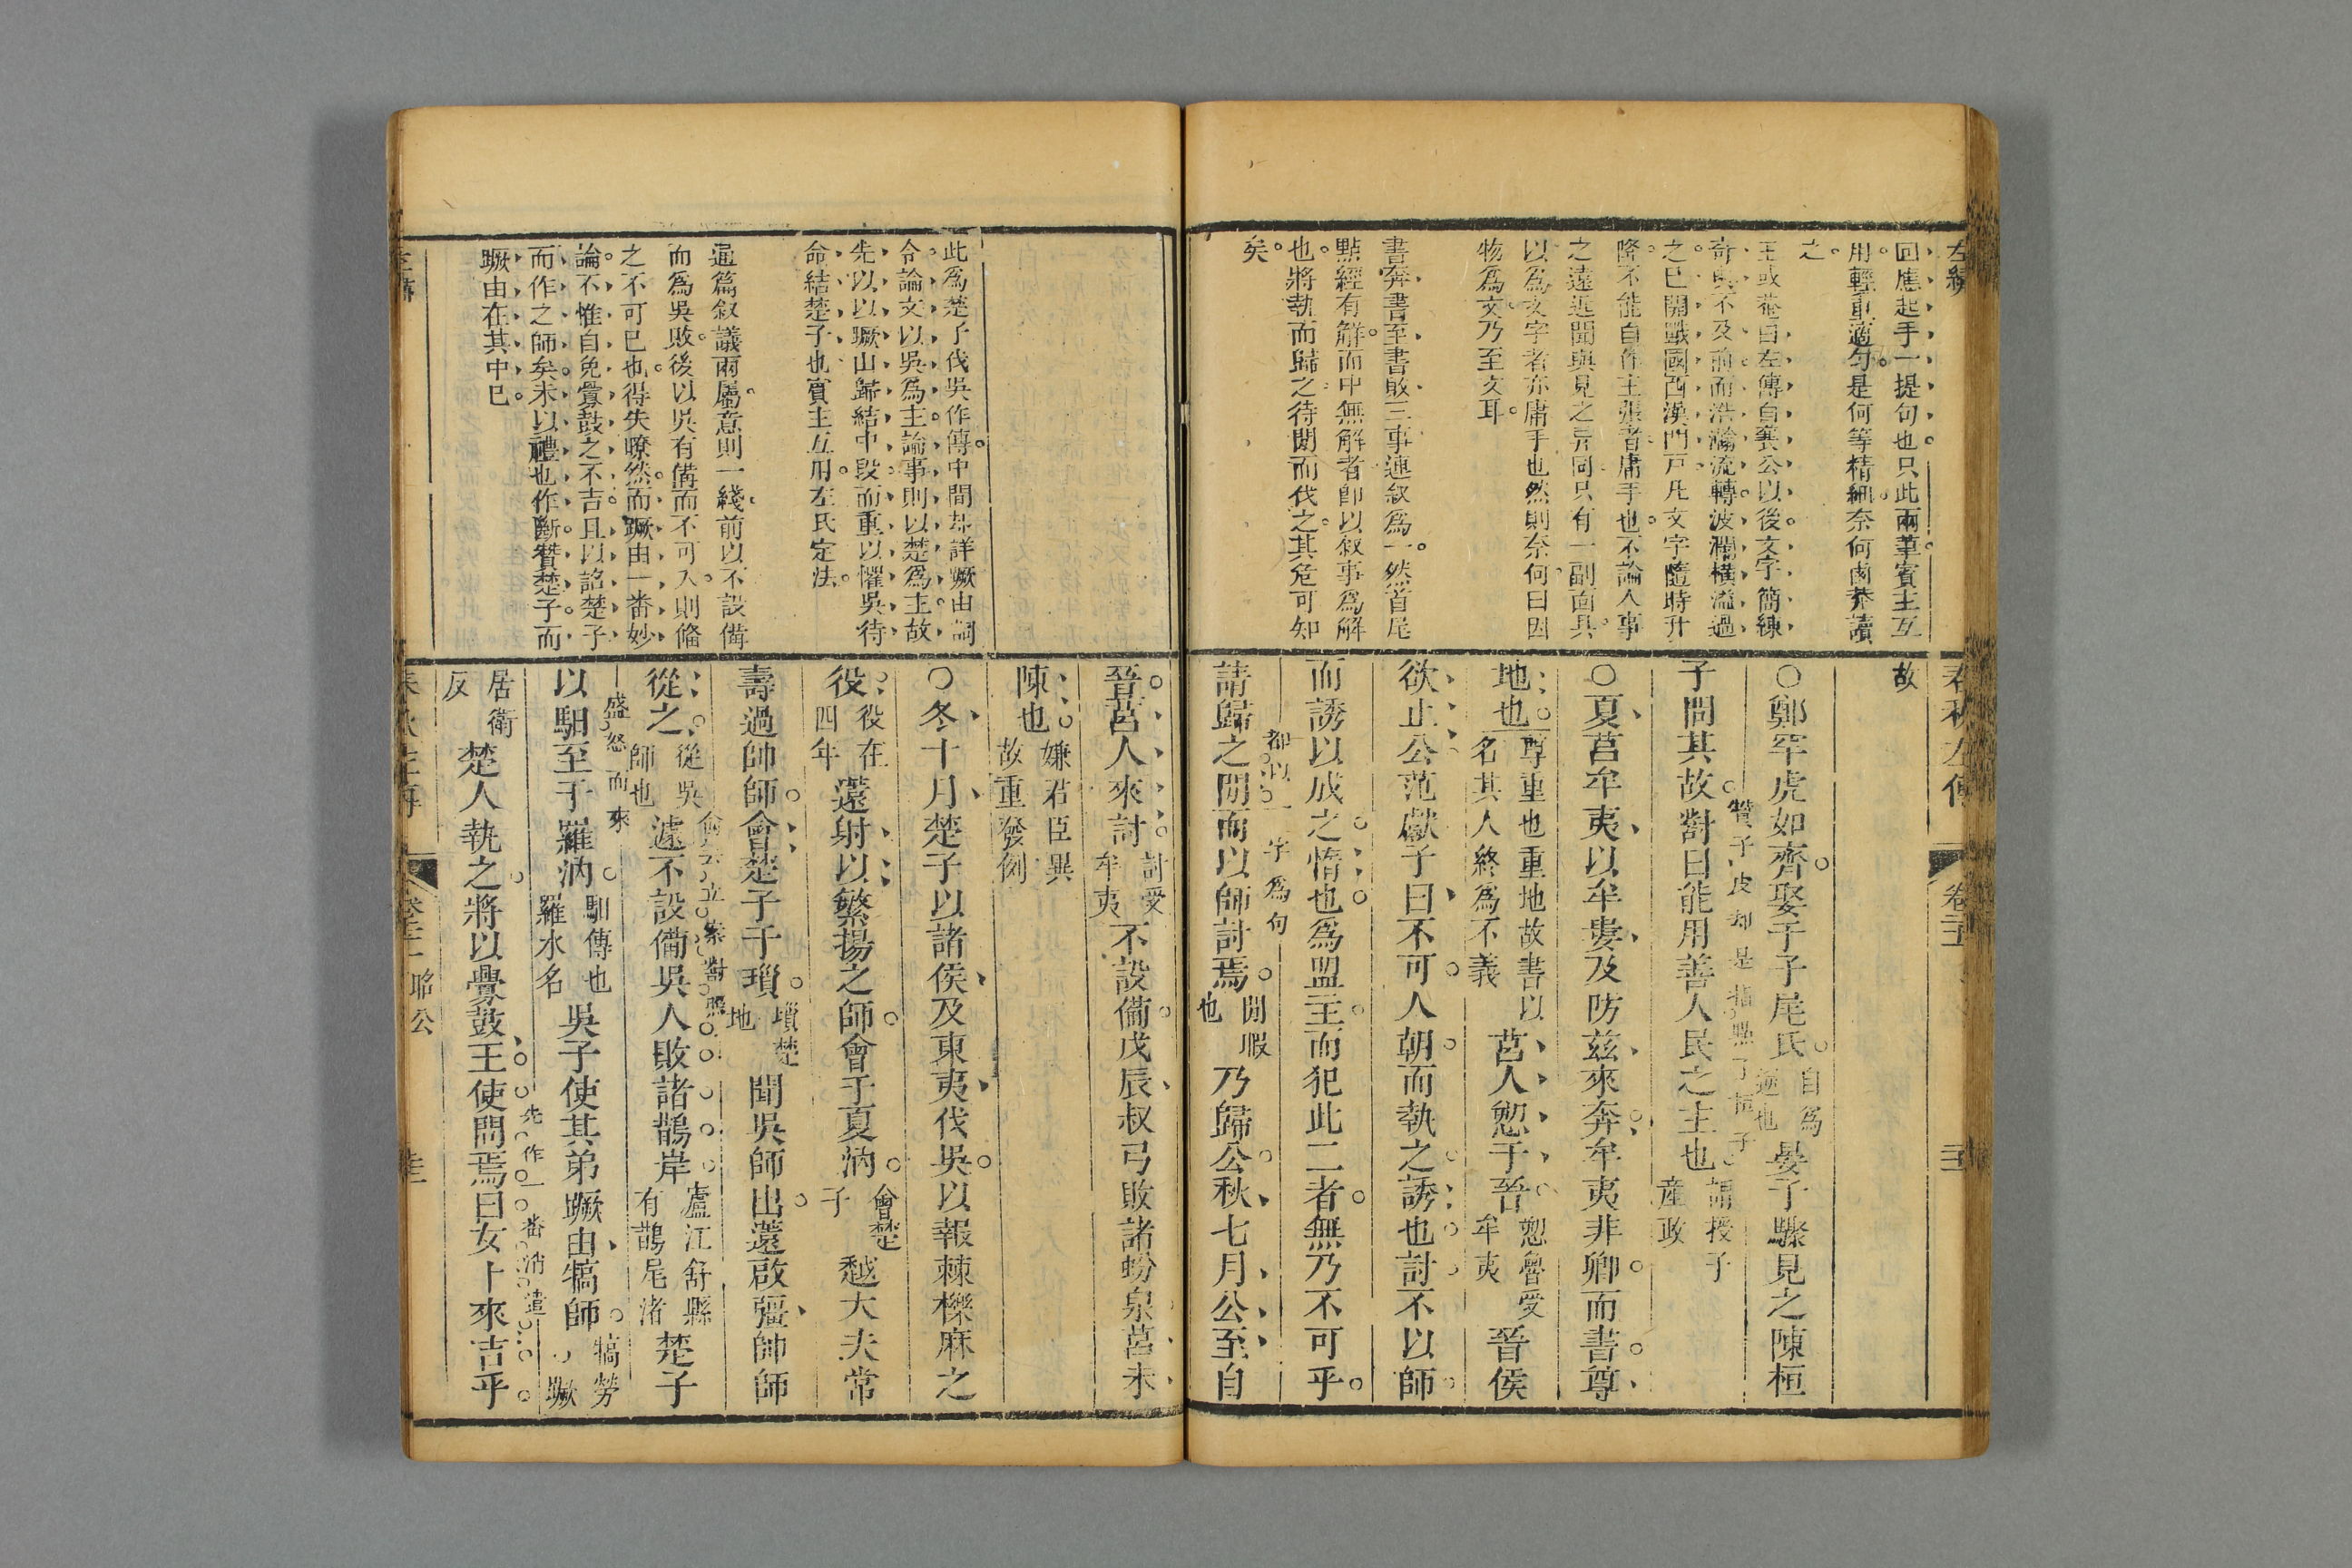 左繡
回應起手一提句也只此兩筆賓主互
用輕重適勻是何等精細奈何鹵莽讀
之
王或菴曰左傳自襄公以後文字簡練
奇奧不及前而浩瀚流轉波瀾橫溢過
之已開戰國西漢門戸凡文字隨時升
降不能自作主張者庸手也不論人事
之遠近聞與見之異同只有一副面具
以爲文字者亦庸手也然則奈何曰因
物爲文乃至文耳
書奔書至書敗三事連叙爲一然首尾
點經有解而中無解者卽以叙事爲解
也將執而歸之待閒而伐之其危可知
矣
春秋左傳
卷二十一
故
○鄭罕虎如齊娶于子尾氏
自爲
逆也
晏子驟見之陳桓
子問其故對曰能用善人民之主也
謂授子
產政
贊子皮却是指點了桓子
○夏莒牟夷以牟婁及防茲來奔牟夷非卿而書尊
地也
尊重也重地故書以
名其人終爲不義
莒人愬于晉
愬魯受
牟夷
晉侯
欲止公范獻子曰不可人朝而執之誘也討不以師
而誘以成之惰也爲盟主而犯此二者無乃不可乎
請歸之閒而以師討焉
閒暇
也
乃歸公秋七月公至自
却以一字爲句
此爲楚子伐吳作傳中間却詳蹶由詞
令論文以吳爲主論事則以楚爲主故
先以以蹶山歸結中段而重以懼吳待
命結楚子也賓主互用左氏定法
通篇叙議兩屬意則一綫前以不設備
而爲吳敗後以吳有備而不可入則偹
之不可已也得失瞭然而蹶由一番妙
論不惟自免釁鼓之不吉且以諂楚子
而作之師矣末以禮也作斷贊楚子而
蹶由在其中已
晉莒人來討
討受
牟夷
不設備戊辰叔弓敗諸蚡泉莒未
陳也
嫌君臣異
故重發例
○冬十月楚子以諸侯及東夷伐吳以報棘櫟麻之
役
役在
四年
薳射以繁揚之師會于夏汭
會楚
子
越大夫常
壽過帥師會楚子于瑣
瑣楚
地
聞吳師出薳啟彊帥師
從之
從吳
師也
遽不設備吳人敗諸鵲岸
廬江舒縣
有鵲尾渚
楚子
以馹至于羅汭
馹傳也
羅水名
吳子使其弟蹶由犒師
犒勞
蹶
盛怒而來
居衛
反
楚人執之將以釁鼓王使問焉曰女卜來吉乎
先作一番消遣
昭公